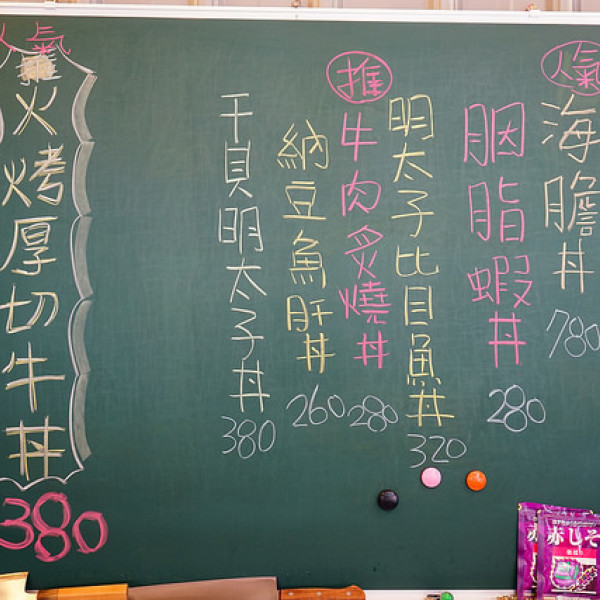 人氣
海膽丼
780
胭脂蝦丼
280
明太子比目魚丼
320
推
牛肉炙燒丼
280
納豆魚肝丼
260
干貝明太子丼
380
人氣
火烤厚切牛丼
380
赤しそ
赤しそ